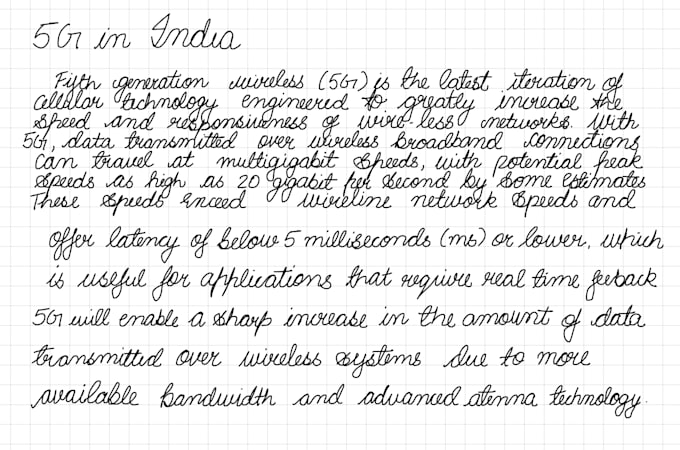 5G in India
Fifth generation wireless (5G) is the latest iteration of
cellular technology engineered to greatly increase the
speed and responsiveness of wire-less networks. With
5G, data transmitted over wireless broadband connections
can travel at multigigabit speeds, with potential peak
speeds as high as 20 gigabit per second by some estimates
These speeds exceed wireline network speeds and
offer latency of below 5 milliseconds (ms) or lower, which
is useful for applications that require real time feeback
5G will enable a sharp increase in the amount of data
transmitted over wireless systems due to more
available bandwidth and advanced atenna technology.